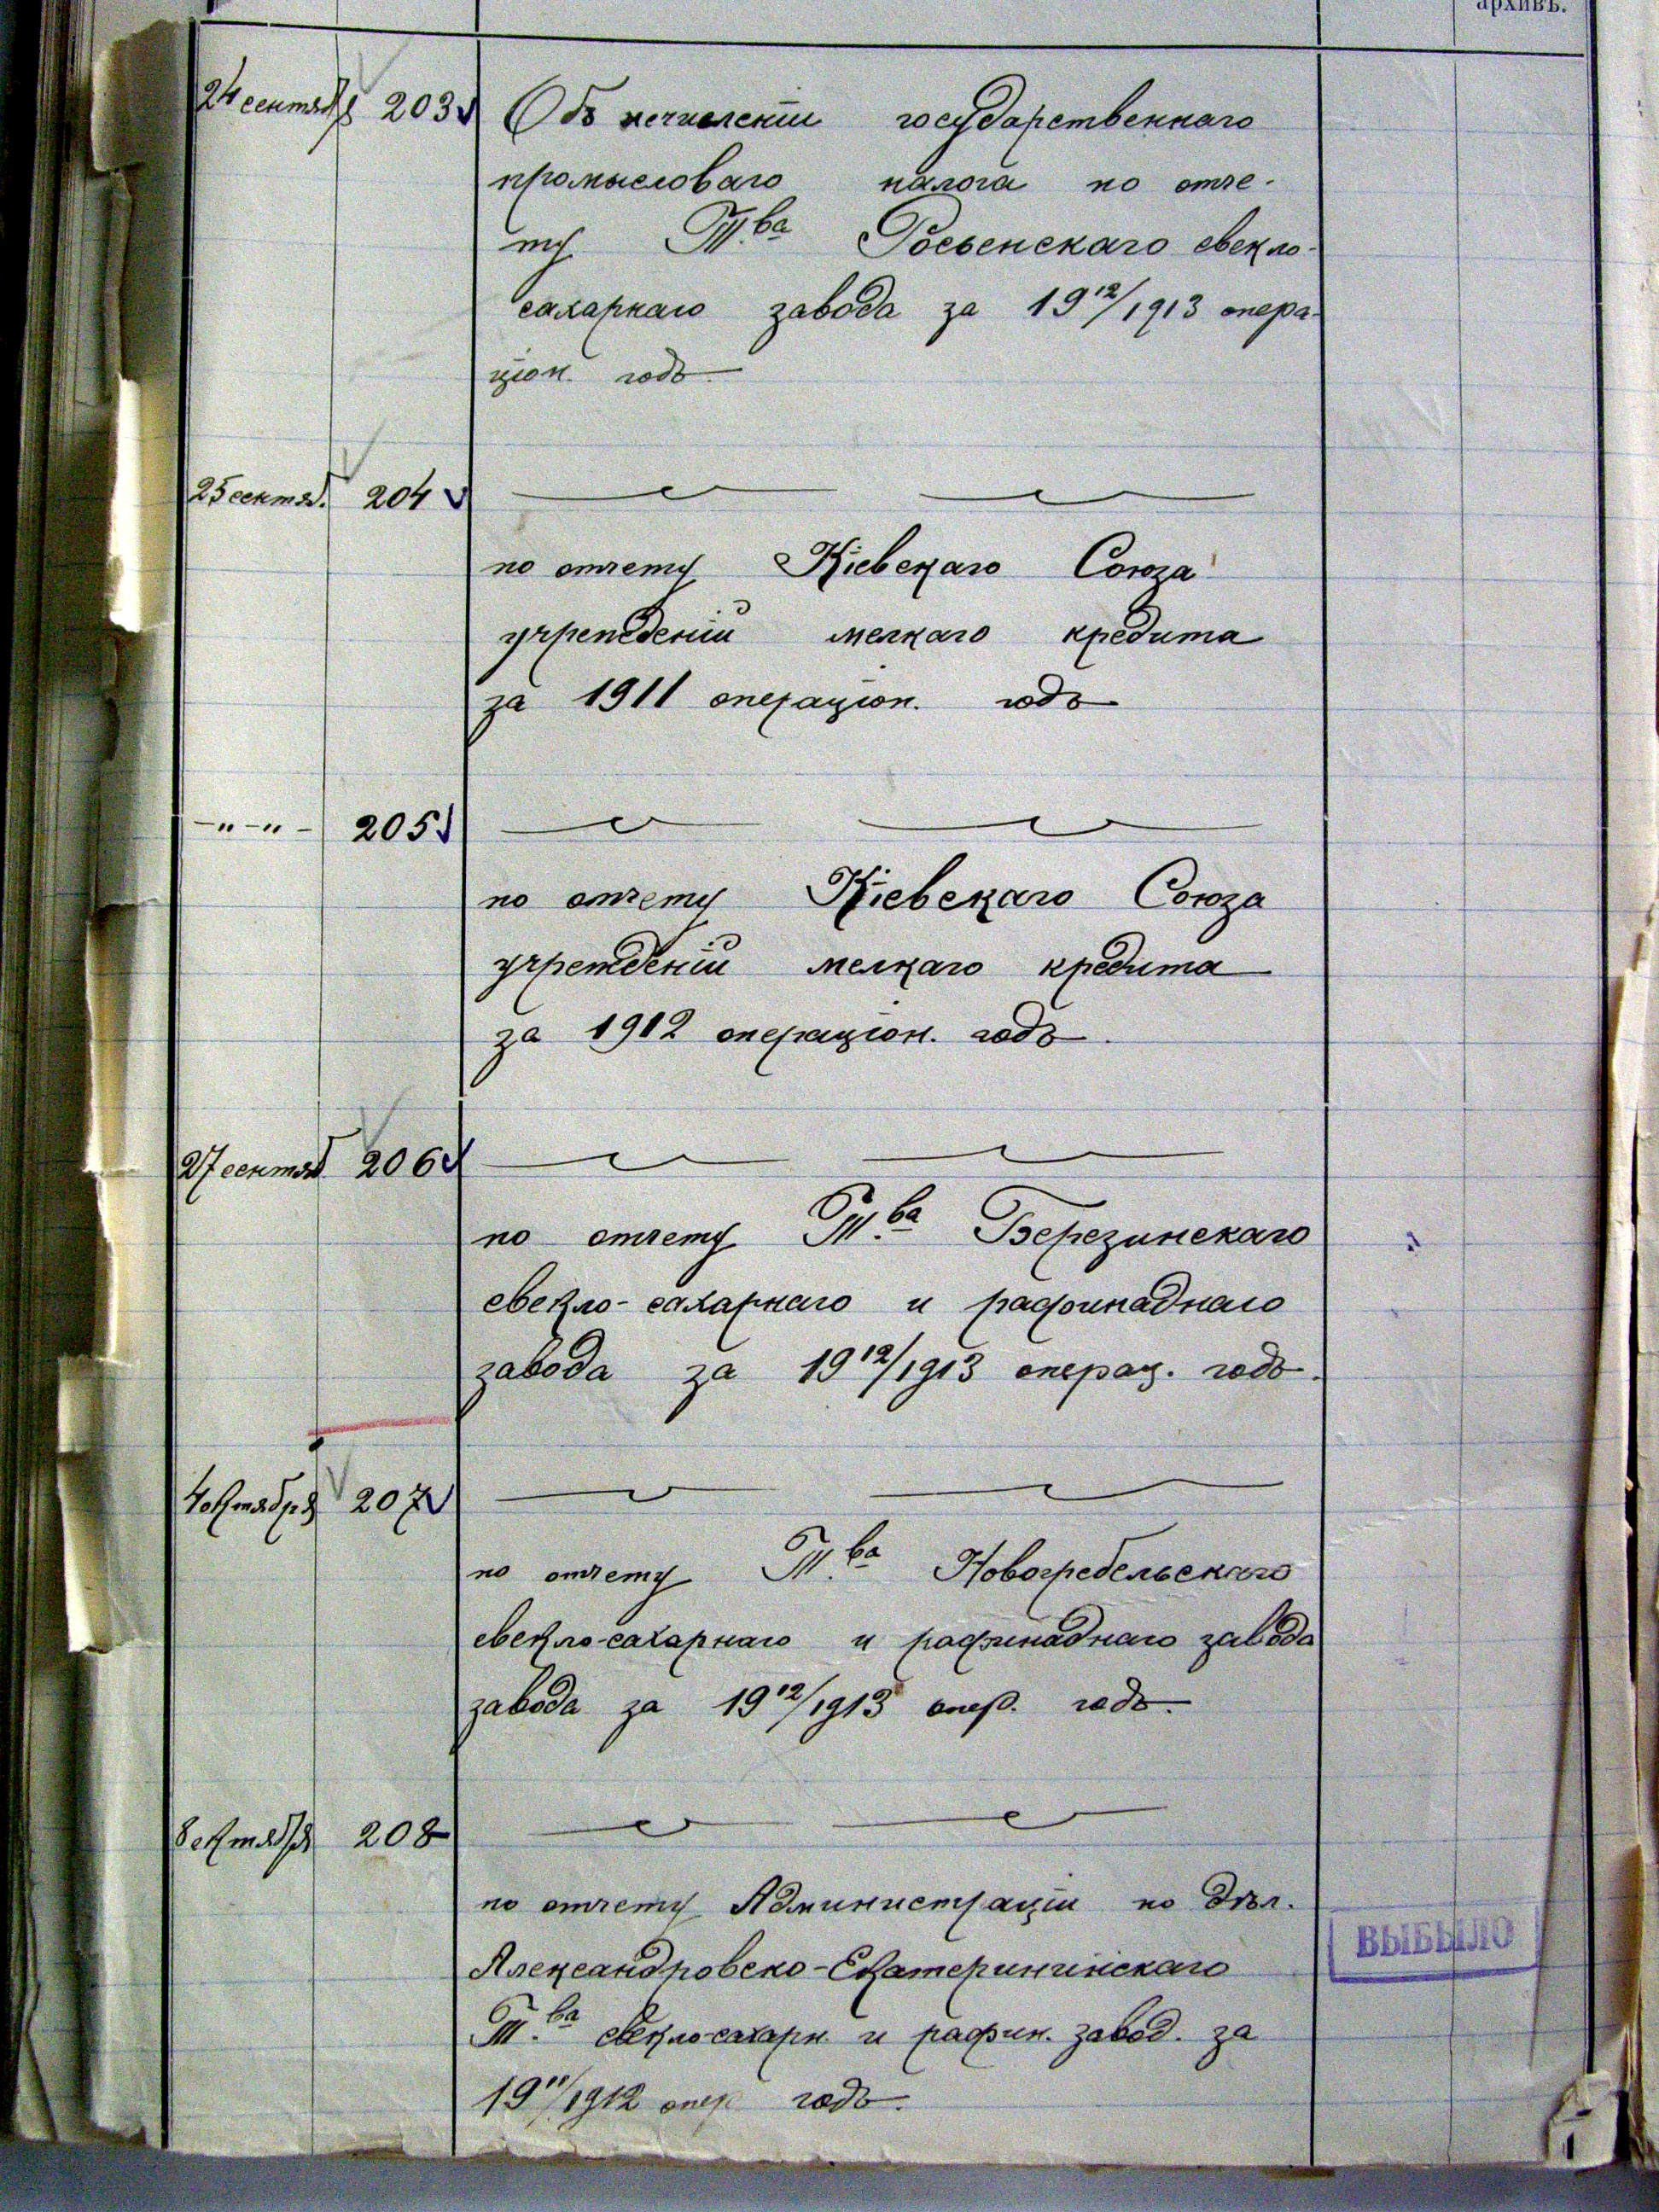 архивъ.
24 сентября 203 Объ исчисленіи государственнаго
промысловаго налога по отче-
ту Т.ва Росьенскаго свекло-
сахарнаго завода за 1912/1913 опера-
ціон. годъ
25 сентяб. 204
по отчету Кіевскаго Союза
учрежденій мелкаго кредита
за 1911 операціон. годъ
-"-"- 205
по отчету Кіевскаго Союза
учрежденій мелкаго кредита
за 1912 операціон. годъ.
27 сентяб 206
по отчету Т.ва Березинскаго
свекло-сахарнаго и рафинаднаго
завода за 1912/1913 операц. годъ.
4 октября 207
по отчету Т.ва Новогребельскаго
свекло-сахарнаго и рафинаднаго завода
завода за 1912/1913 опер. годъ.
8 октября 208
по отчету Администраціи по дѣл.
Александровско-Екатерининскаго
ВЫБЫЛО
Т.ва свекло-сахарн. и рафин. завод. за
1911/1912 опер годъ.